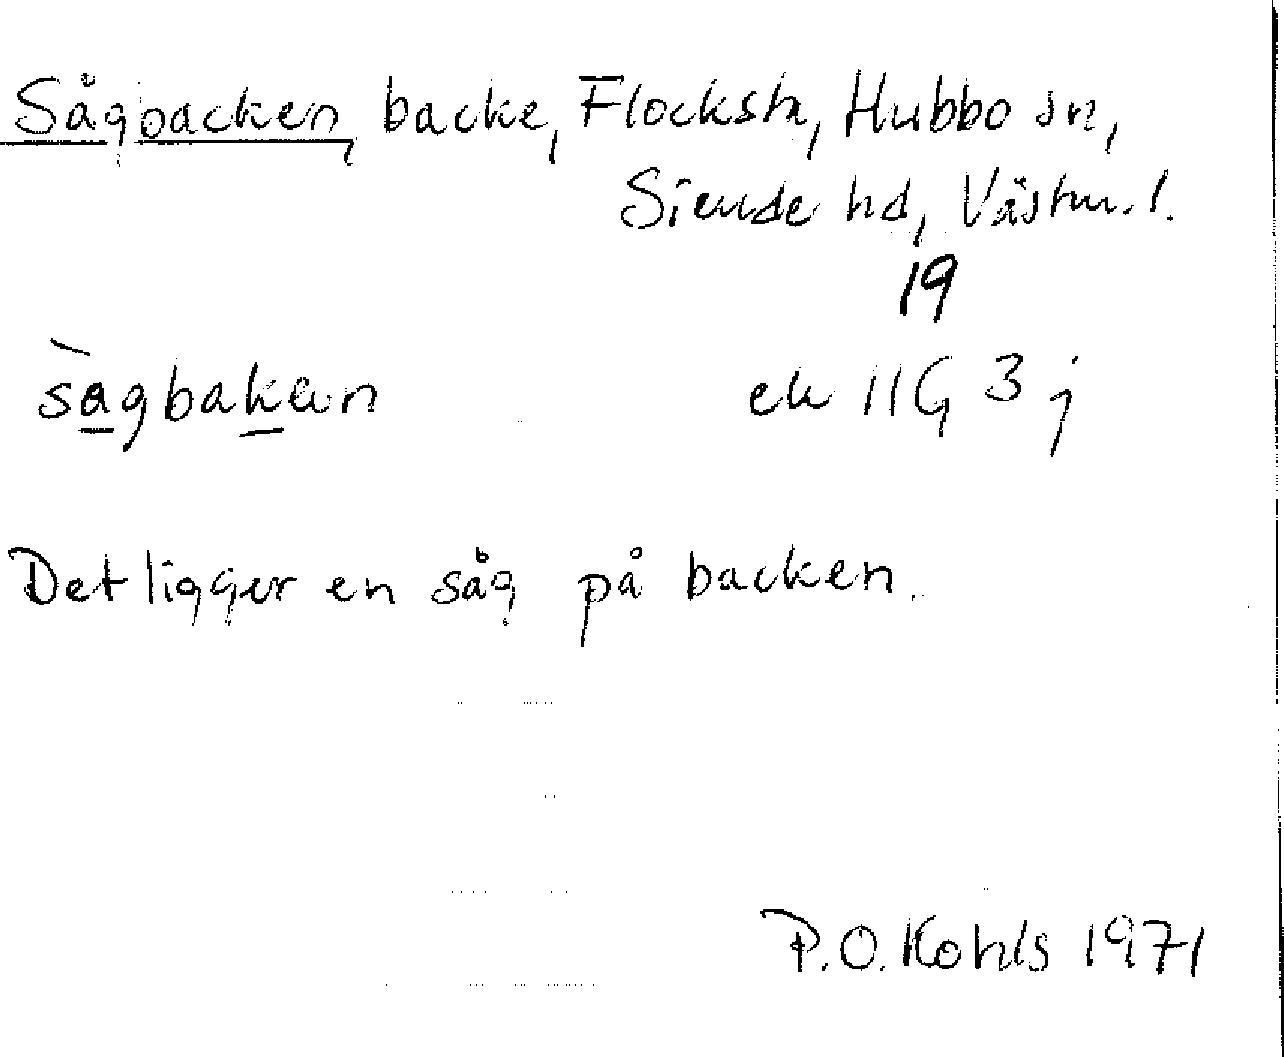 Sågbacken, backe, Flocksta, Hubbo sn,
Siende hd, Västm. l.
19
sàgbakan
ek 11G 3 j
Det ligger en såg på backen.
P.O. Kohls 1971